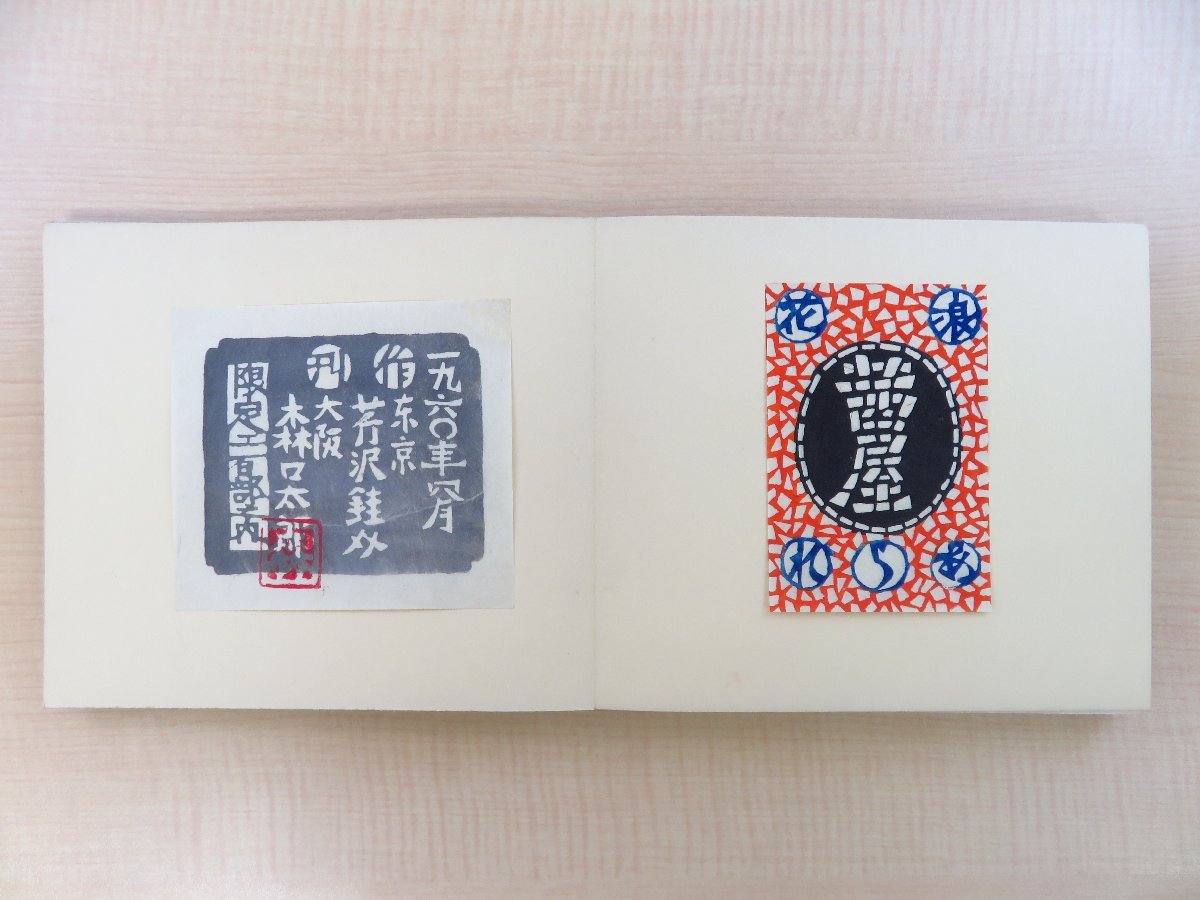 一九六〇年四月
东京
芹沢銈介
刊 大阪
森口太郎
限定 百部内
浪花
屋
あられ